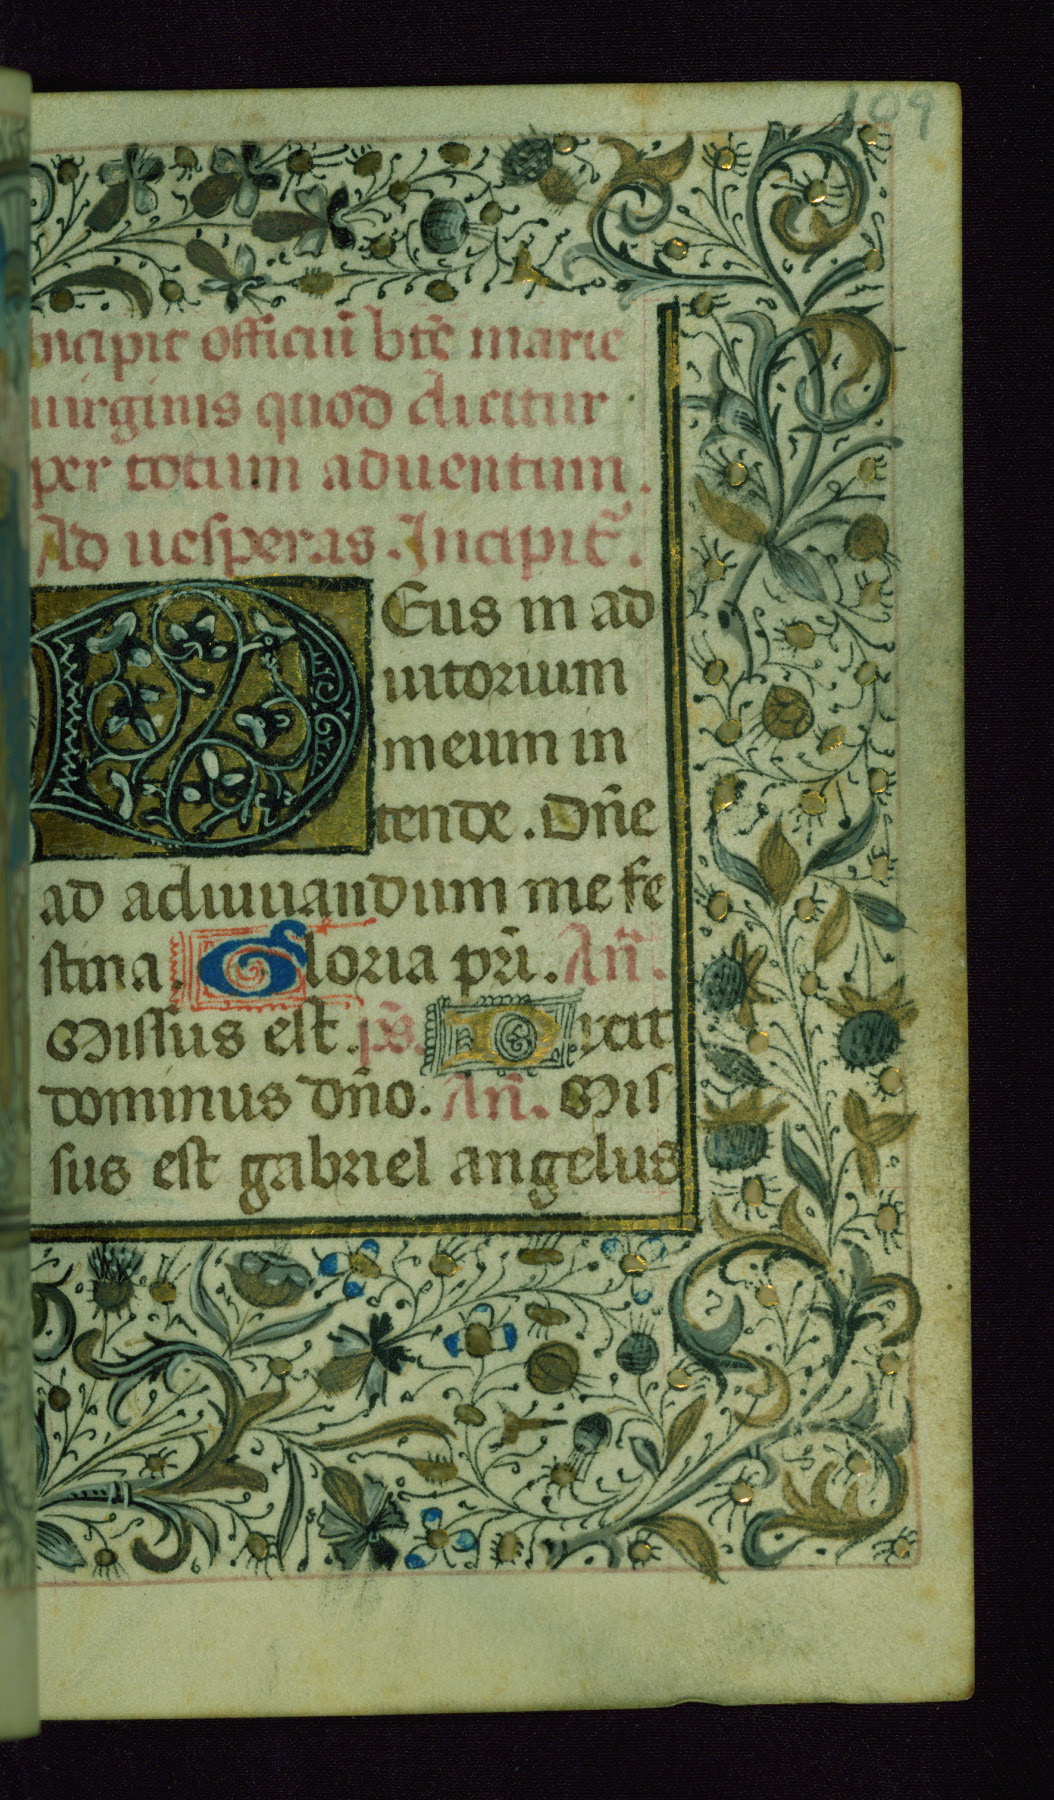 109
Incipit officiū btē marie
uirginis quod dicitur
per totum aduentum.
Ad uesperas. Incipit̃.
DEus in ad
iutorium
meum in
tende. Dñe
ad adiuuandum me fe
stina. Gloria pri̅. Añ.
Missus est. ps̃. Dixit
dominus dño. Añ. Mis
sus est gabriel angelus